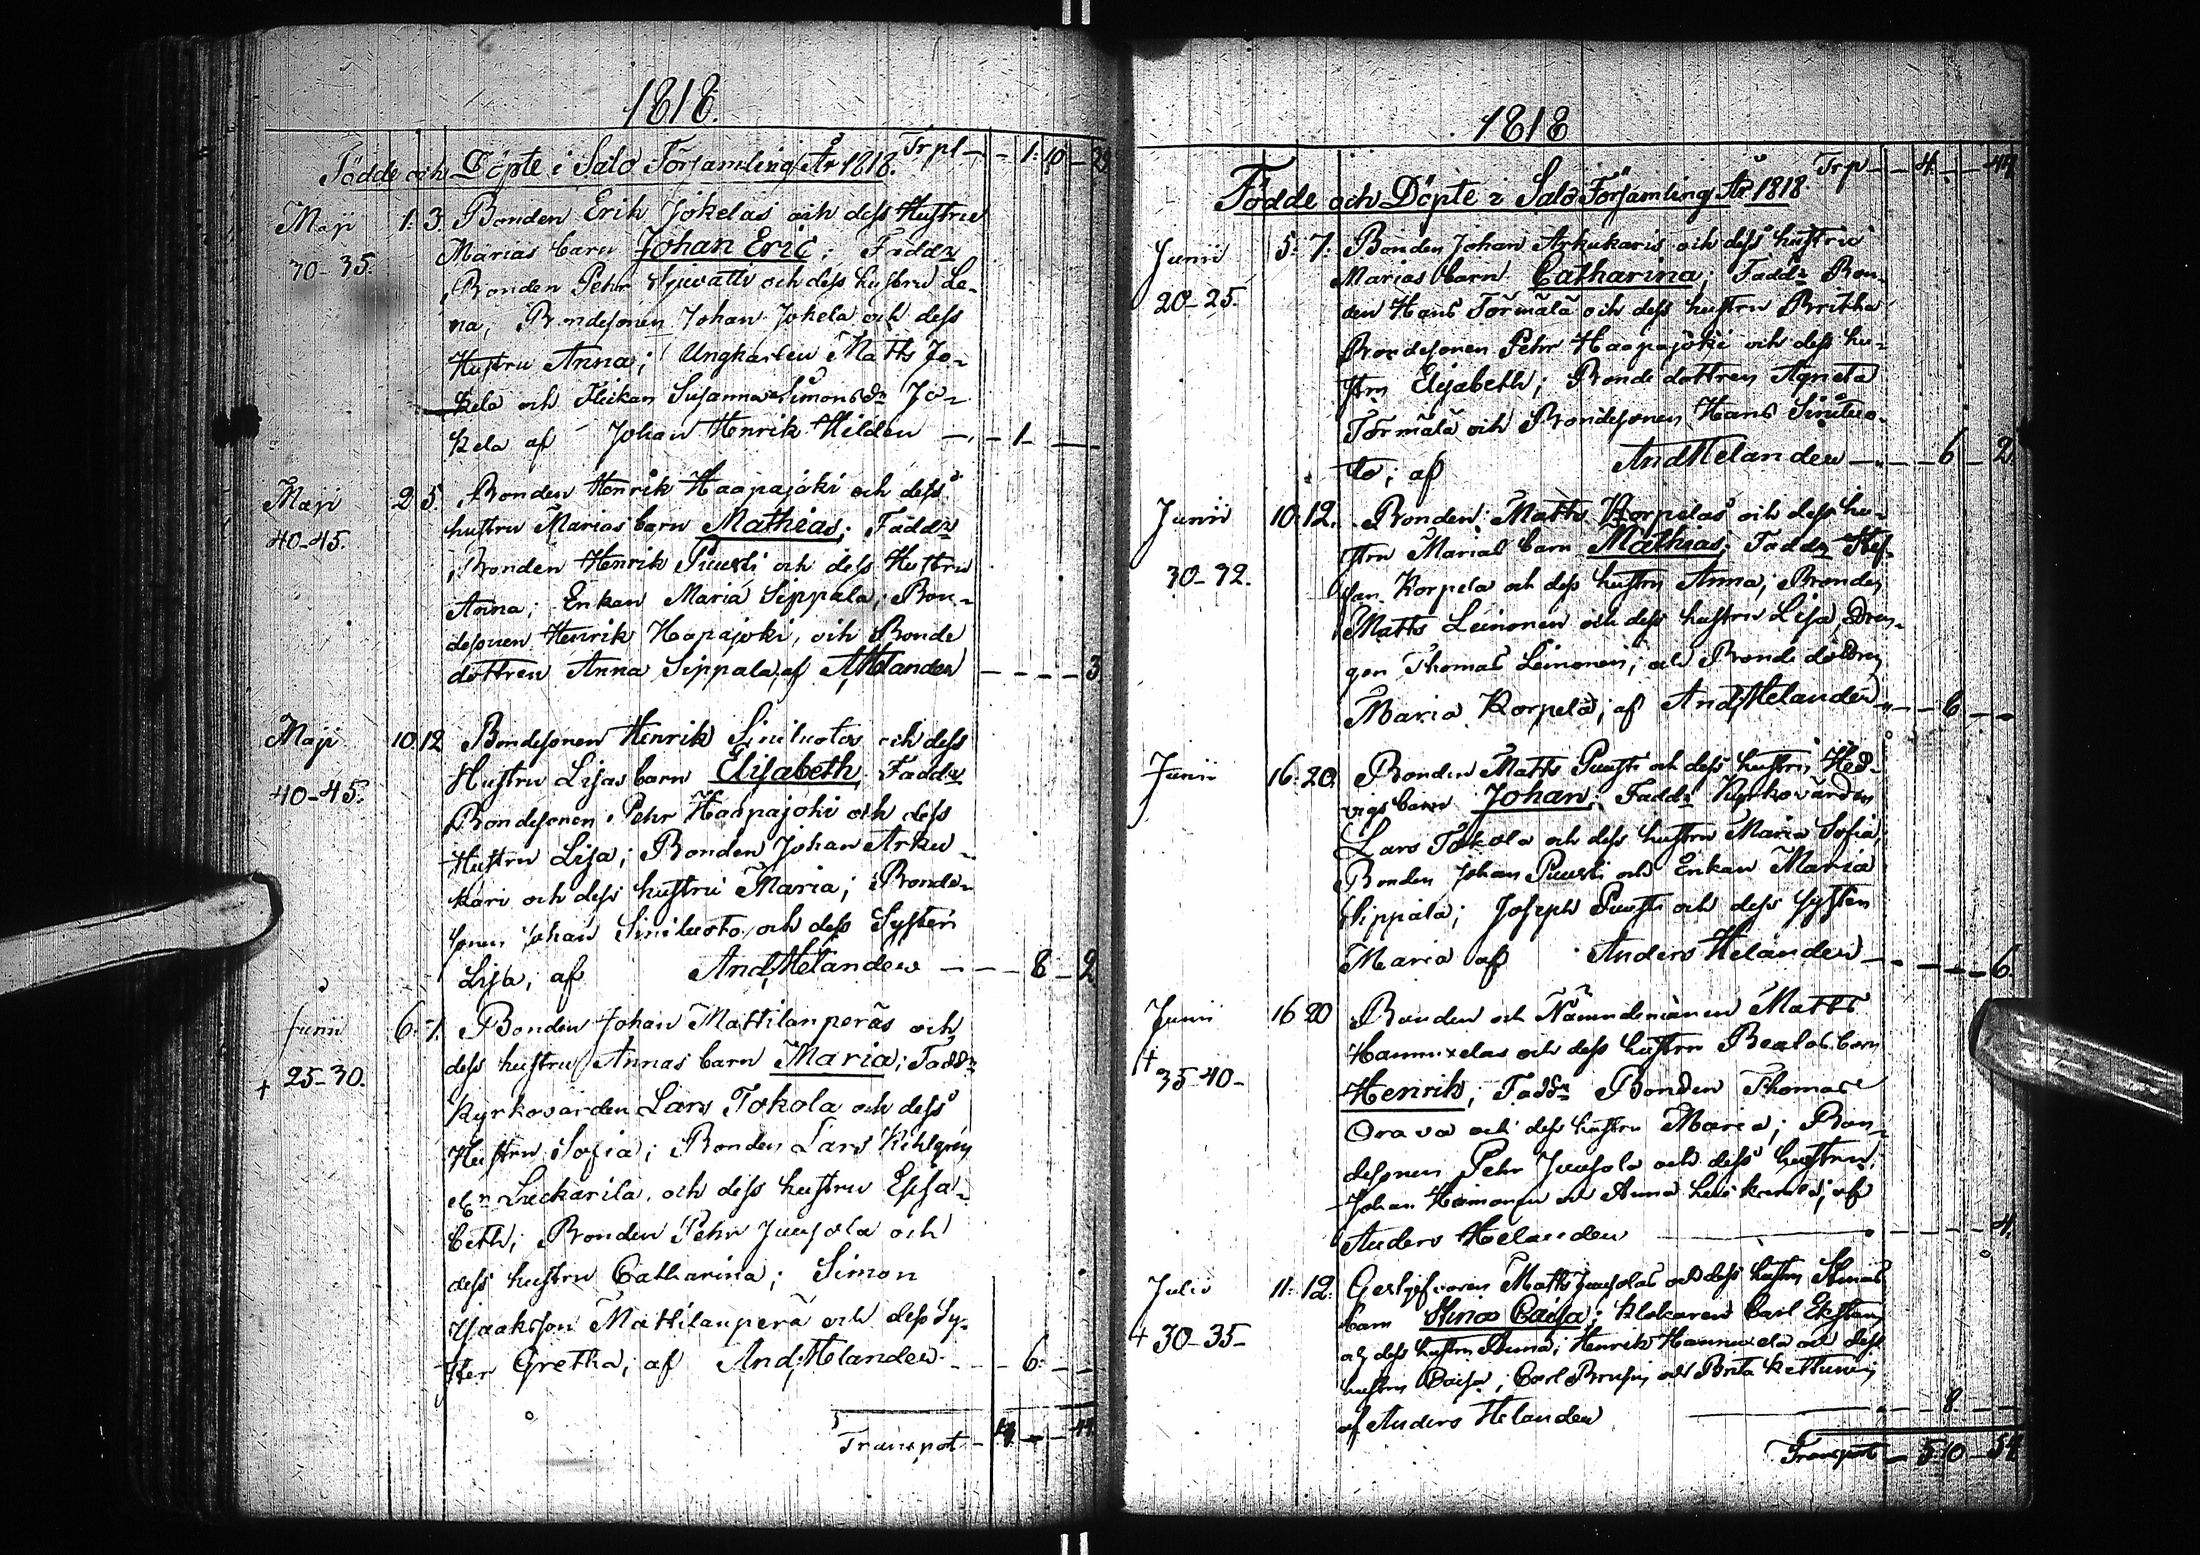 1818.
Födde och Döpte i Salo Församling År 1818. Trpt — 1: 10 — 29
Maji 1. 3. Bonden Erik Jokelas och dess Hustru
Marias barn Johan Eric; Faddr
30-35. Bonden Pehr och dess hustru Le-
na; Bondesonen Johan Jokela och dess
Hustru Anna; Ungkarlen Matts Jo-
kela och Flickan Susanna Simonsdr Jo-
kela af Johan Henrik Hildén — 1 —
Maji 2 5. Bonden Henrik Haapajoki och dess
hustru Marias barn Mathias; Faddr
40-45. Bonden Henrik Puusti och dess Hustru
Anna; Enkan Maria Sippala; Bon-
desonen Henrik Haapajoki, och Bonde
dottren Anna Sippala, af A Helander — 3
Maji 10 12 Bondesonen Henrik Siniluotos och dess
Hustru Lisas barn Elisabeth. Faddr
40-45. Bondesonen Pehr Haapajoki och dess
Hustru Lisa; Bonden Johan Arku-
kari och dess hustru Maria; Bonde-
sonen Johan Siniluoto och dess Syster
Lisa; af And; Helander — 8 — 2
Junii 6. 7. Bonden Johan Mattilanperäs och
dess hustru Annas barn Maria; Faddr
+ 25-30.
Kyrkovärden Lars Tokola och dess
Hustru Sofia; Bonden Lars
och dess hustru Elisa-
beth; Bonden Pehr Juusola och
dess hustru Catharina; Simon
Isaaksson Mattilanperä och dess Sy-
ster Gretha; af And; Helander — 6 —
Transpot — 4 — 44
1818
Trp — 4 — 44
Födde och Döpte i Salo Församling År 1818
Junii 5. 7. Bonden Johan Arkukaris och dess hustru
Marias barn Catharina; Faddr Bon-
20-25. den Hans Törmälä och dess hustru Britha
Bondesonen Pehr Haapajoki och dess hu-
stru Elisabeth; Bonde dottren Agneta
Törmälä och Bondesonen Hans Siniluo-
to; af And Helander — 6 — 2
Junii 10. 12. Bonden Matts Korpelas och dess hu-
stru Marias barn Mathias; Faddr Stef-
30-32. fan Korpela och dess hustru Anna; Bonden
Matts Leinonen och dess hustru Lisa, Dren-
gen Thomas Leinonen; och Bonde dottren
Maria Korpela; af And; Helander — 6 —
Junii 16. 20. Bonden Matts Puusti och dess hustru Hed-
vigs barn Johan; Faddr Kyrkovärden
Lars Tokola och dess hustru Maria Sofia;
Bonden Johan Puusti och Enkan Maria
Sippala; Joseph Puusti och dess syster
Maria af Anders Helander — 6.
Junii 16 20 Bonden och Nämndemanen Matts
Hannuxelas och dess hustru Beatas barn
+ 35-40-
Henrik; Faddr Bonden Thomas
Orava och dess hustru Maria; Bon-
desonen Pehr Juusola och dess hustru;
Johan och Anna af
Anders Helander — 4.
Julii 11. 12. Matts Juusolas och dess hustru Stinas
barn Stina Caisa; Klokaren Carl
+ 30-35-
och dess hustru Anna; Henrik Hannuxela och dess
hustru Caisa; Carl och Brita Kettunen
af Anders Helander — 8. —
Transport — 5 10 — 54